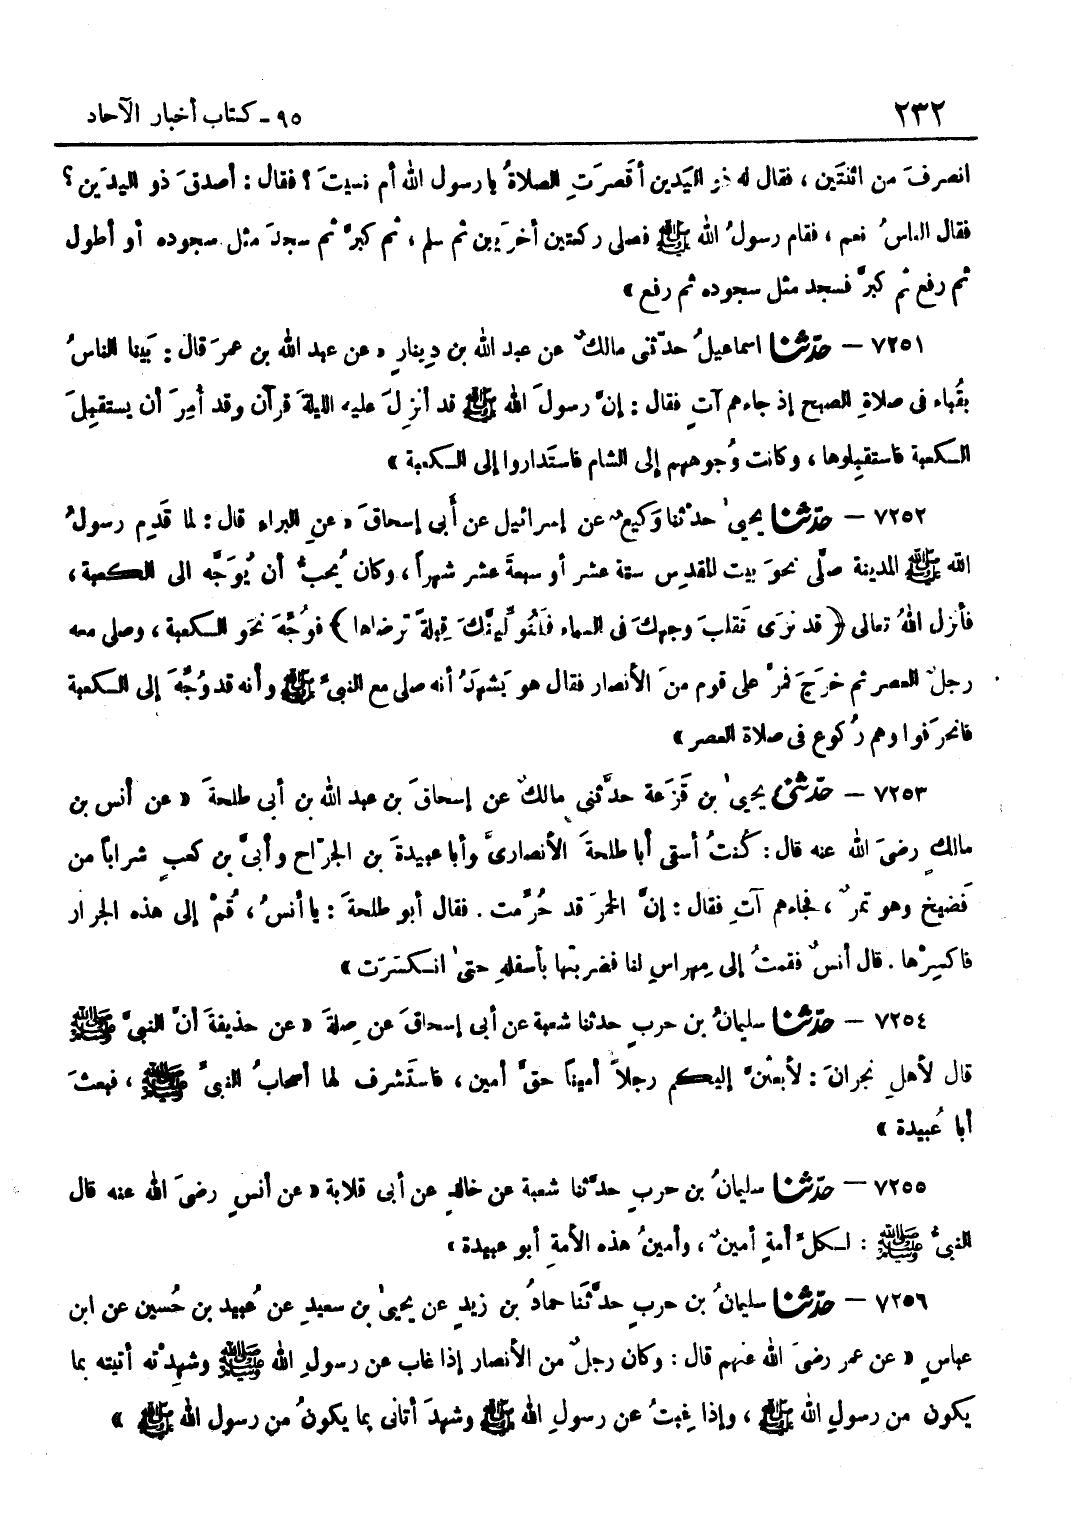 ٢٣٢ ٩٥ - كتاب أخبار الآحاد
انصرفَ من اثنتَين ، فقال له ذو اليَدين أقَصرَتِ الصلاةُ يا رسول الله أم نسيتَ ؟ فقال : أصدقَ ذو اليدَين ؟
فقال الناسُ نعم ، فقام رسولُ الله ﷺ فصلى ركعتين أخرَيين ثم سلم ، ثم كبرَّ ثم سجدَ مثل سجوده أو أطول
ثم رفع ثم كبرَّ فسجد مثل سجوده ثم رفع »
٧٢٥١ – حدّثنا اسماعيلُ حدّثنى مالكٌ عن عبد الله بن دِينارٍ « عن عبد الله بن عمرَ قال : بَينا الناسُ
بقُباء فى صلاةِ الصبح إذ جاءهم آتٍ فقال : إنَّ رسولَ الله ﷺ قد أنزِلَ عليه الليلةَ قرآن وقد أُمِرَ أن يستقبِلَ
الكعبة فاستقبِلوها ، وكانت وُجوههم إلى الشام فاستَداروا إلى الكعبة »
٧٢٥٢ – حدّثنا يحيىٰ حدثنا وَكيعٌ عن إسرائيل عن أَبى إسحاقَ « عنِ البراءِ قال : لما قَدِم رسولُ
الله ﷺ المدينة صلَّى نحوَ بيت المقدِسِ ستة عشر أو سبعةَ عشر شهراً ، وكان يُحبُّ أن يُوَجَّه الى الكعبة ،
فأنزل اللهُ تعالى ﴿ قد نرَى تَقلبَ وجهكَ فى السماء فلَنُوَلِّيَنَّكَ قِبلةً ترضاها ﴾ فوُجَّهَ نحوَ الكعبة ، وصلى معه
رجلٌ العصر ثم خرَجَ فمرَّ على قوم منَ الأنصار فقال هو يَشهدُ أنه صلى مع النبىِّ ﷺ وأنه قد وُجِّهَ إلى الكعبة
فانحرَفوا وهم رُكوع فى صلاة العصر »
٧٢٥٣ – حدّثنى يحيىٰ بن قَزَعة حدَّثنى مالكٌ عن إسحاقَ بن عبد الله بن أبى طلحةَ « عن أنس بن
مالكٍ رضىَ الله عنه قال : كُنتُ أسقى أبا طلحةَ الأنصارىَّ وأبا عبيدةَ بن الجرّاح وأبىَّ بن كعبٍ شراباً من
فَضيخ وهو تمرٌ ، فجاءهم آتٍ فقال : إنَّ الخمرَ قد حُرِّمت . فقال أبو طلحةَ : يا أنسُ ، قُمْ إلى هذه الجرار
فاكسِرْها . قال أنسٌ فقمتُ إلى مِهراسٍ لنا فضربتها بأسفلهِ حتىٰ انكسَرَت »
٧٢٥٤ – حدّثنا سليمانُ بن حربٍ حدثنا شعبة عن أبى إسحاقَ عن صِلةَ « عن حذيفةَ أنَّ النبىَّ ﷺ
قال لأهلِ نجرانَ : لأبعثنَّ إليكم رجلاً أميناً حقَّ أمين ، فاستَشرف لها أصحابُ النبىِّ ﷺ ، فبعثَ
أبا عُبيدة »
٧٢٥٥ – حدّثنا سليمانُ بن حربٍ حدّثنا شعبة عن خالدٍ عن أبى قلابة « عن أنسٍ رضىَ الله عنه قال
النبىُّ ﷺ : لكلِّ أمةٍ أمينٌ ، وأمينُ هذه الأمةِ أبو عبيدة »
٧٢٥٦ – حدّثنا سليمانُ بن حربٍ حدَّثَنا حمادُ بن زيدٍ عن يحيىٰ بن سعيدٍ عن عُبيد بن حُسين عن ابن
عباسٍ « عن عمر رضىَ الله عنهم قال : وكان رجلٌ من الأنصار إذا غاب عن رسولِ الله ﷺ وشهِدْته أتيته بما
يكون من رسولِ الله ﷺ ، وإذا غِبتُ عن رسولِ الله ﷺ وشهدَ أتانى بما يكونُ من رسول الله ﷺ »